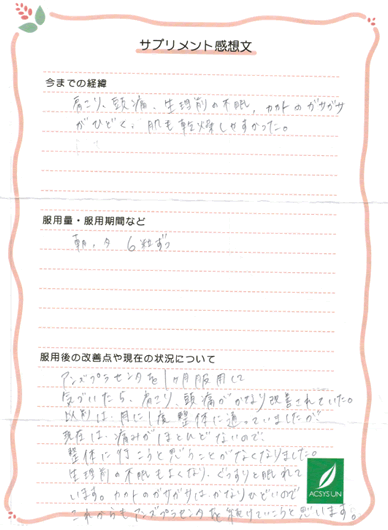 サプリメント感想文
今までの経緯
肩こり、頭痛、生理前の不眠、カカトのガサガサ
がひどく、肌も乾燥しやすかった。
服用量・服用期間など
朝、夕 6粒ずつ
服用後の改善点や現在の状況について
アンズプラセンタを1ヶ月服用して
気づいたら、肩こり、頭痛がかなり改善されていた。
以前は、月に1度整体に通っていましたが
現在は、痛みがほとんどないので、
整体に行こうと思うことがなくなりました。
生理前の不眠もなくなり、ぐっすりと眠れて
います。カカトのガサガサは、かなりひどいので
これからもアンズプラセンタを続けていこうと思います。
ACSYSUN